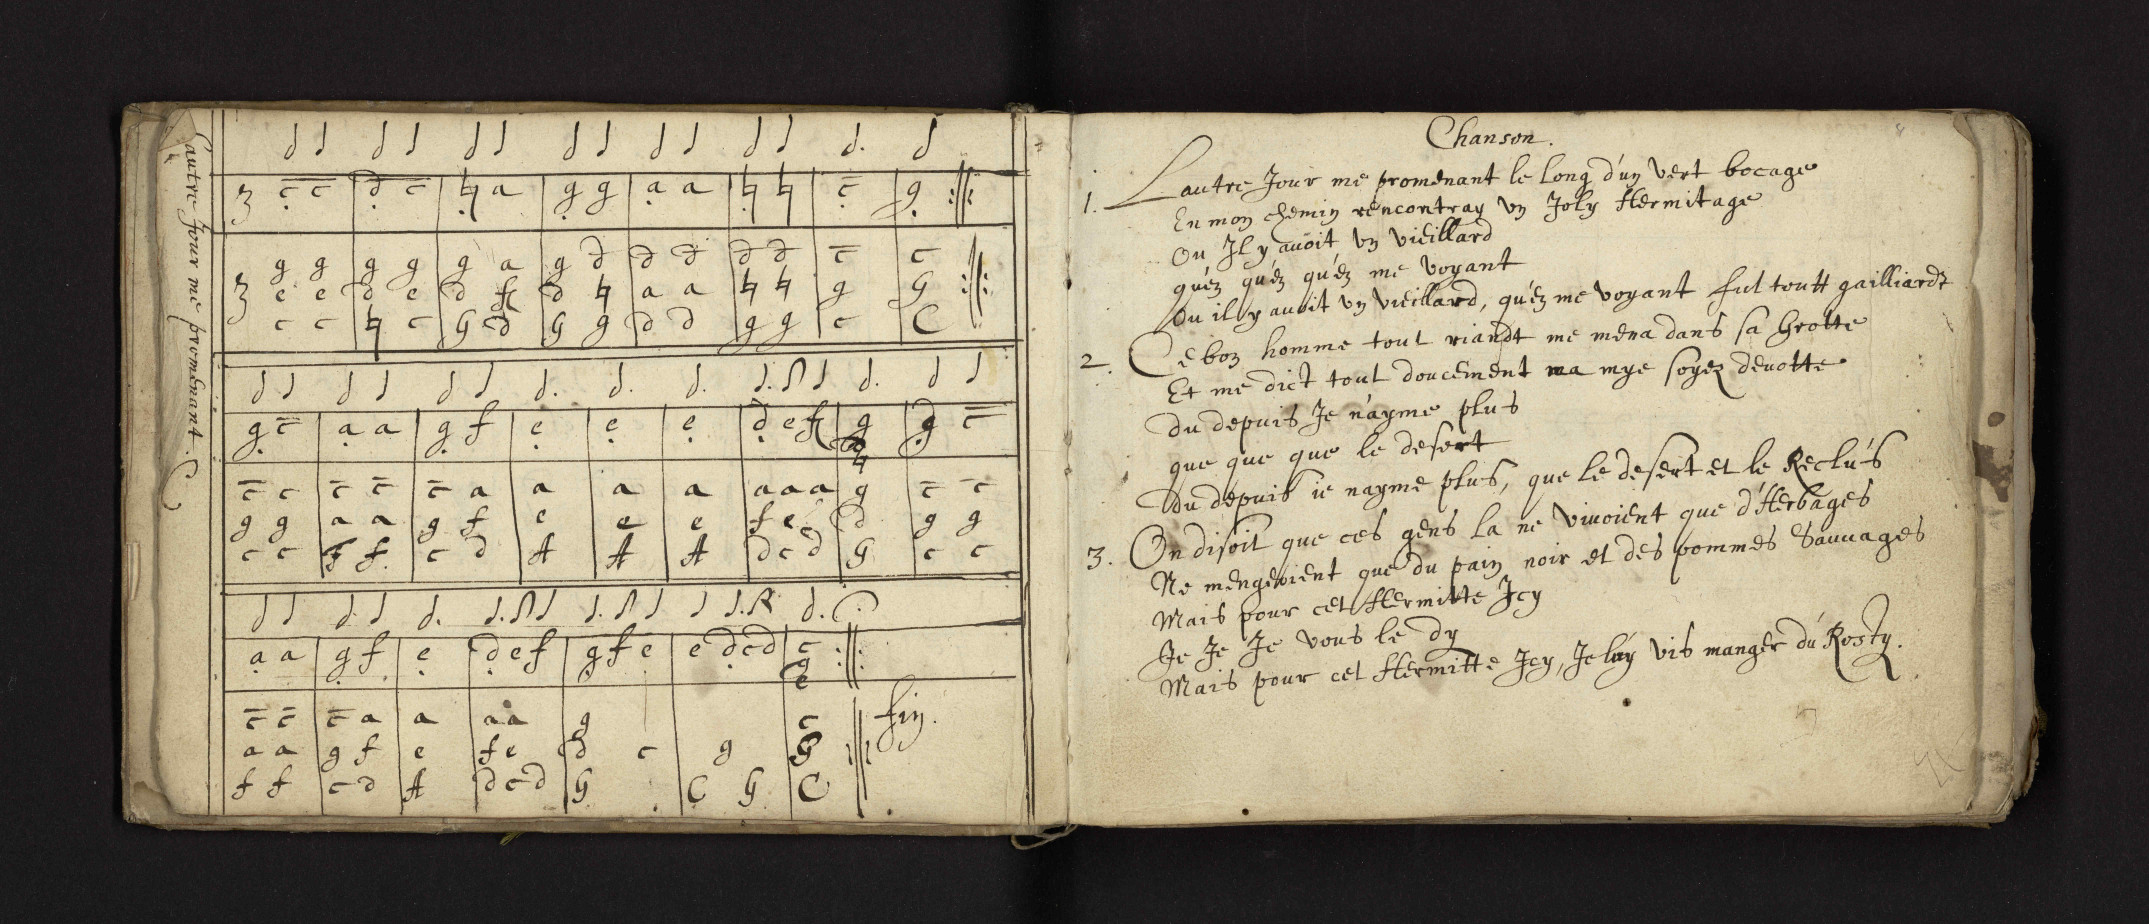 Lautre Jour me promenant.
3 c c d c ♮ a g g a a ♮ ♮ c g
g g g g g a g d d d d d c c
3 e e d e d f d ♮ a a ♮ ♮ g G
c c ♮ c G c d G g d d g g c C
g c a a g f e e e d e f g g c
c c c c c a a a a a a a g c c
g g a a g f e e e f e c d g g
c c F f c d A A A d c d G c c
a a g f e d e f g f e e d c d c
g
e
c c c a a a a g c fin.
a a g f e f e d c g G
f f c d A d c d G C G C
Chanson.
1. Lautre Jour me promenant le long d'uy vert bocage
En moy chemiy rencontray uy Joly Hermitage
Ou Jl y auoit uy vieillard
quez quez quez me voyant
Ou il y auoit uy vieillard, quez me voyant fut toutt gailliardt
2. Ce boy homme tout riandt me mena dans sa Grotte
Et me dict tout doucement ma mye soyez deuotte
du depuis Je n'ayme plus
que que que le desert
du depuis ie nayme plus, que le desert et le Reclus
3. On disoit que ces gens la ne viuoient que d'Herbages
Ne mengeoient que du paiy noir et des pommes Sauuages
Mais pour cet Hermitte Jcy
Je Je Je vous le dy
Mais pour cet Hermitte Jcy, Je luy vis manger du Rosty.